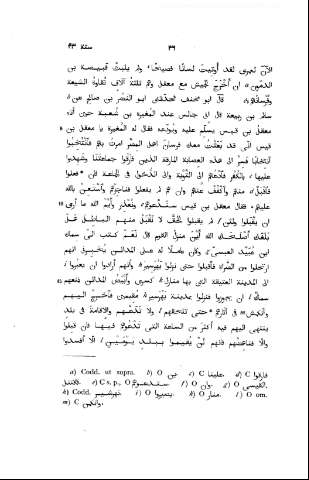 سنة ٤٣ ٣٩
الآن لعمرى لقد أوتيت لسانًا فصيحًا ولم يلبث قبيصة بن
الدمّون ان اخرج لجيش مع معقل وهم ثلثة آلاف نقاوة الشيعة
وفرسانهم قال ابو مخنف فحدّثنى ابو النضر بن صالح عن
سالم بن ربيعة قال انى جالس عند المغيرة بن شعبة حين أتاه
معقل بن قيس يسلّم عليه ويودّعه فقال له المغيرة يا معقل بن
قيس انّى قد بعثت معك فرسان اهل المصر امرت بهم فانتخبوا
انتخابًا فسر الى هذه العصابة المارقة الذين فارقوا جماعتنا وشهدوا
عليها بالكفر فادعهم الى التوبة والى الدخول فى الجماعة فان فعلوا
فاقبل منهم واكفف عنهم وان هم لم يفعلوا فناجزهم واستعن بالله
عليهم فقال معقل بن قيس سندعوهم ونعذر وأيم الله ما أرى
ان يقبلوا ولئن لم يقبلوا الحقّ لا نقبل منهم الباطل هل
بلغك أصلحك الله أين منزل القوم قال نعم كتب الىّ سماك
ابن عبيد العبسىّ وكان عاملًا له على المدائن يخبرنى انهم
ارتحلوا من الصراة فأقبلوا حتى نزلوا بهرسير وأنهم أرادوا ان يعبروا
الى المدينة العتيقة التى بها منازل كسرى وأبيض المدائن فمنعهم
سماك ان يجوزوا فنزلوا مدينة بهرسير مقيمين فاخرج اليهم
وانكمش فى آثارهم حتى تلحقهم ولا تدعهم والاقامة فى بلد
ينتهى اليهم فيه أكثر من الساعة التى تدعوهم فيها فان قبلوا
والّا فناهضهم فانهم لن يقيموا ببلد يومين الّا افسدوا
a) Codd. ut supra. b) O بن. c) C علينا. d) O فارقوا
e) C s. p., O سندعوهم. f) O وان. g) O القيسى.
h) Codd. نهرشير. i) O يعبروا. k) O منار. l) O om.
m) C وانكمن.